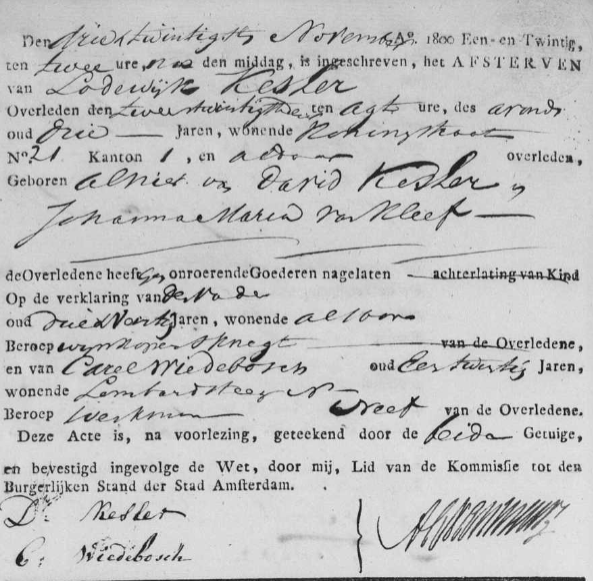 Den drieentwintigste November Ao. 1800 Een- en Twintig,
ten twee ure na den middag, is ingeschreven, het AFSTERVEN
van Lodewijk Kesler
Overleden den tweeentwintigste ten agt ure, des avonds
oud drie — Jaren, wonende Koningstraat
No 21 Kanton 1, en aldaar overleden,
Geboren alhier van David Kesler en
Johanna Maria van Kleef —
de Overledene heeft geen onroerende Goederen nagelaten — achterlating van Kind
Op de verklaring van de Vader
oud Jaren, wonende alvoor
Beroep wijnkopersknegt — van de Overledene,
en van Carel Wiedebosch oud Jaren,
wonende Lombardsteeg N —
Beroep Werkman Neef van de Overledene.
Deze Acte is, na voorlezing, geteekend door de beide Getuige,
en bevestigd ingevolge de Wet, door mij, Lid van de Kommissie tot den
Burgerlijken Stand der Stad Amsterdam.
D. Kesler
C. Wiedebosch